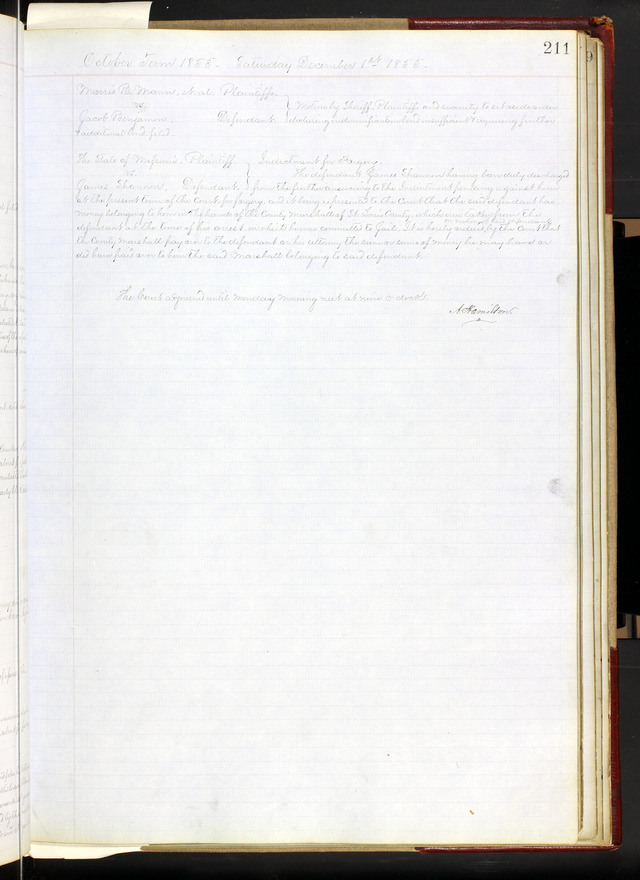 211
October Term 1855. Saturday December 1st 1855.
Morris B. Mann, et al. Plaintiffs,
vs
Jacob Benjamin, Defendant.
Motion by Sheriff, Plaintiffs and security to set aside order
declaring indemnification bond insufficient & requiring further
additional bond filed.
The State of Missouri, Plaintiff
vs.
James Shannon, Defendant.
Indictment for Forgery.
The defendant James Shannon having been duly discharged
from the further answering to the Indictment pending against him
at the present term of the court, for forgery, and it being represented to the Court that the said defendant has
money belonging to him in the hands of the County Marshall of St. Louis County, which was taken from the
defendant at the time of his arrest, or whilst he was committed to Jail. It is hereby ordered by the Court that
the County Marshall pay over to the defendant or his attorney the sum or sums of money he may have or
did have paid over to him the said Marshall belonging to said defendant.
The Court adjourned until Monday morning next at nine o'clock.
A. Hamilton